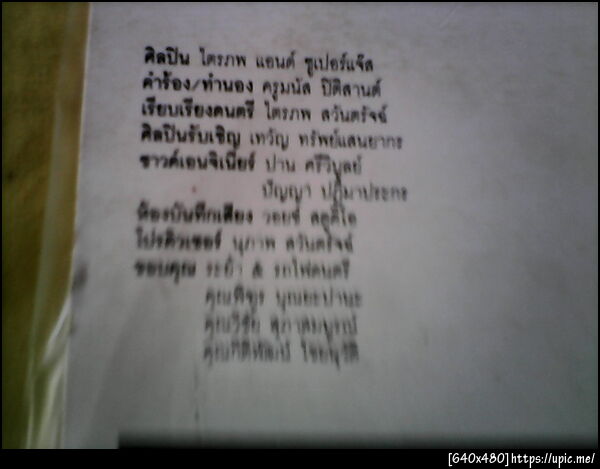 ศิลปิน ไตรภพ แอนด์ ซูเปอร์แจ๊ส
คำร้อง/ทำนอง ครูมนัส ปิติสานต์
เรียบเรียงดนตรี ไตรภพ สวันตรัจฉ์
ศิลปินรับเชิญ เทวัญ ทรัพย์แสนยากร
ซาวด์เอนจิเนียร์ ปาน ศรีวิบูลย์
ปัญญา ปฏิมาประกร
ห้องบันทึกเสียง วอยซ์ สตูดิโอ
โปรดิวเซอร์ นุภาพ สวันตรัจฉ์
ขอบคุณ ระย้า & รถไฟดนตรี
คุณพิฑูร
คุณวิชัย
คุณกิติพัฒน์
[640x480]https://upic.me/